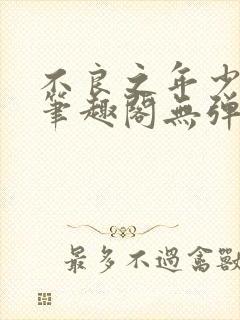 不良之年少
筆趣閣無彈
最多不過禽獸